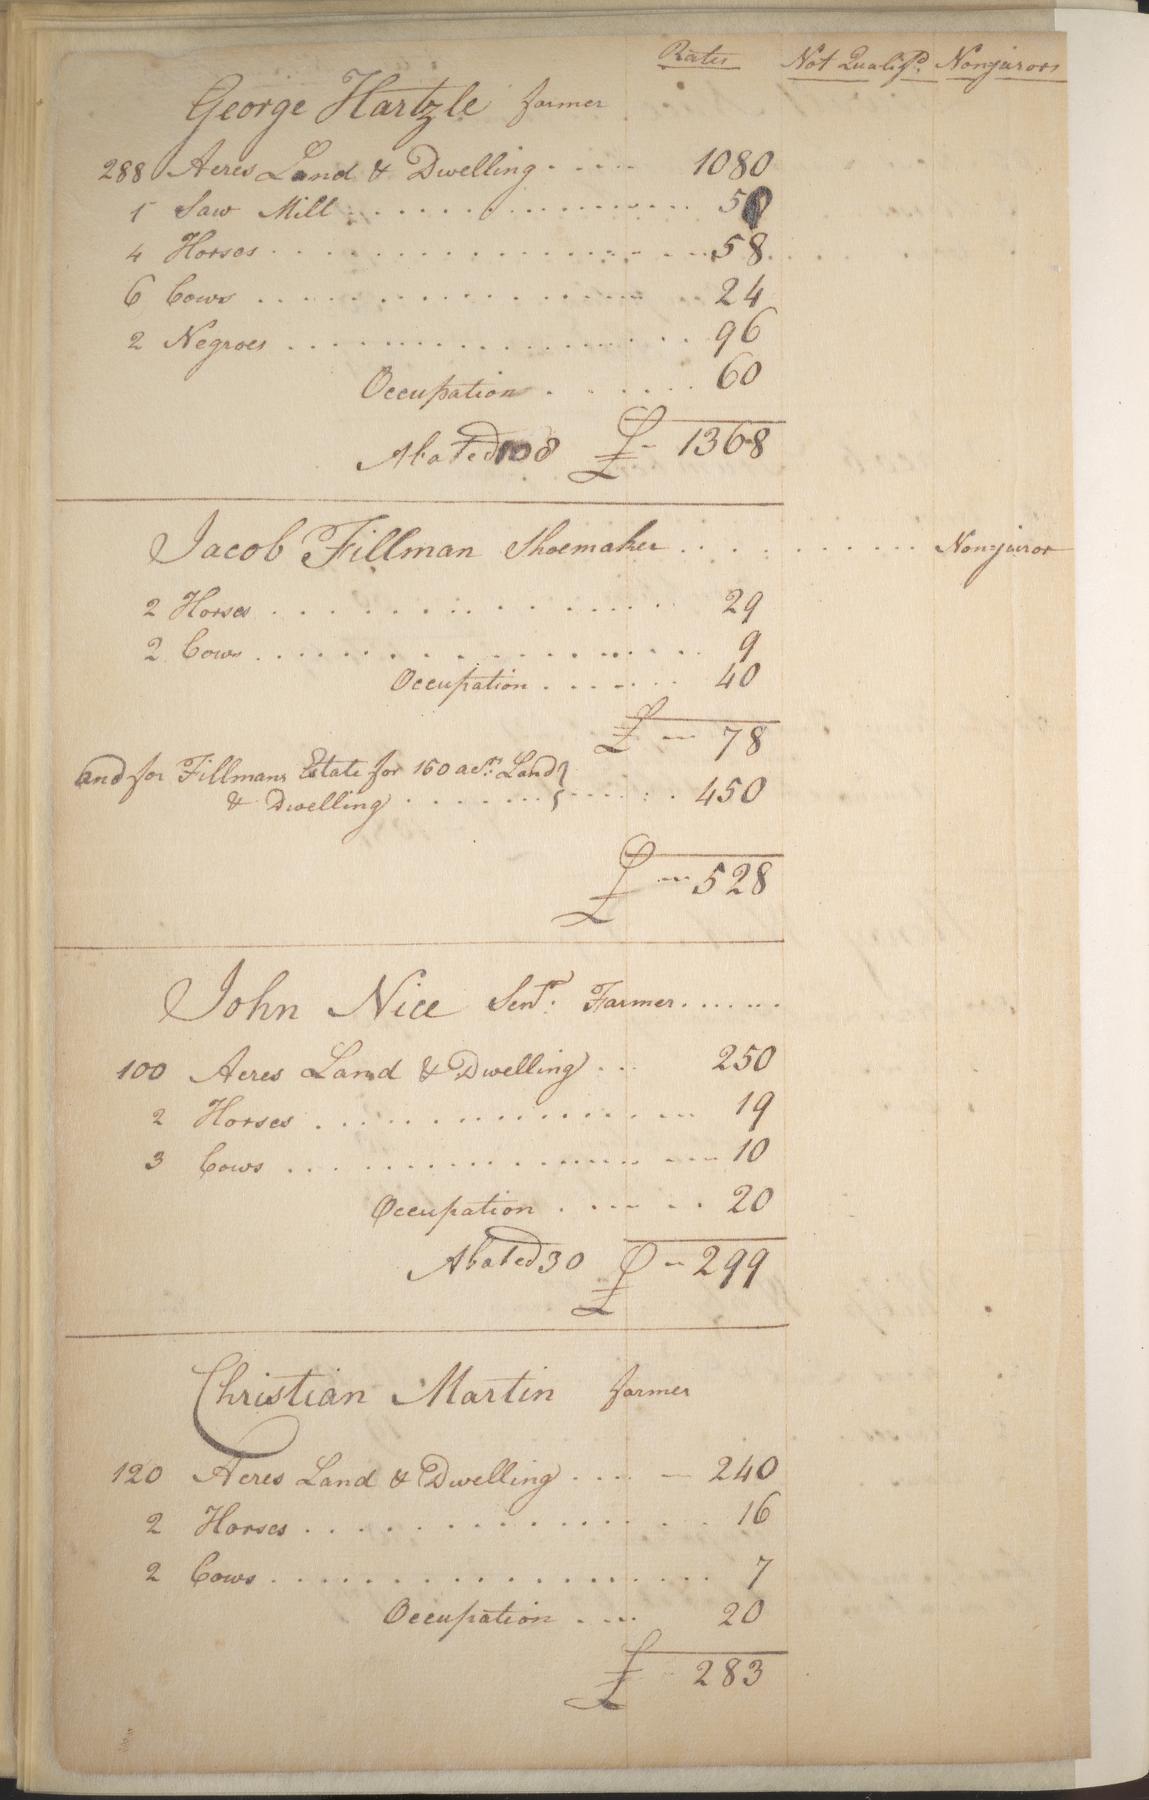 Rates Not Qualif.d Nonjurors
George Hartzle farmer
288 Acres Land & Dwelling 1080
1 Saw Mill 50
4 Horses 58
6 Cows 24
2 Negroes 96
Occupation 60
Abated 108 £ 1368
Jacob Fillman Shoemaker Nonjuror
2 Horses 29
2 Cows 9
Occupation 40
£ 78
and for Fillmans Estate for 150 acrs Land
& Dwelling 450
£ 528
John Nice Senr. Farmer
100 Acres Land & Dwelling 250
2 Horses 19
3 Cows 10
Occupation 20
Abated 30 £ 299
Christian Martin farmer
120 Acres Land & Dwelling 240
2 Horses 16
2 Cows 7
Occupation 20
£ 283